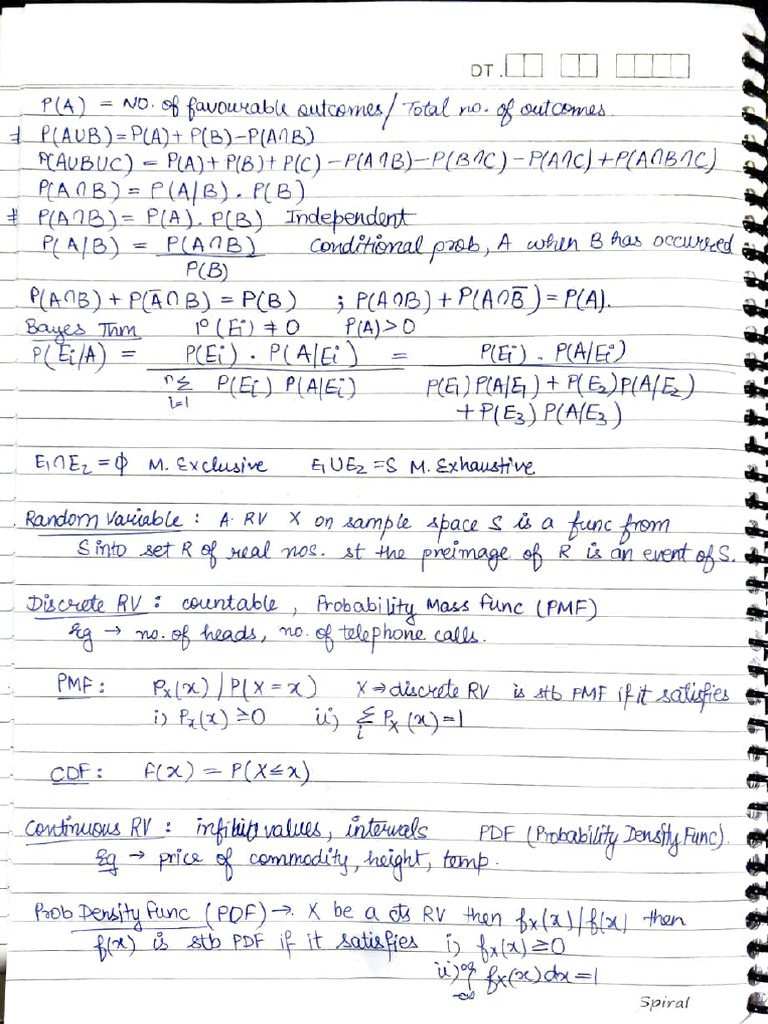 DT.
P(A) = No. of favourable outcomes / Total no. of outcomes.
# P(A∪B) = P(A) + P(B) - P(A∩B)
P(A∪B∪C) = P(A) + P(B) + P(C) - P(A∩B) - P(B∩C) - P(A∩C) + P(A∩B∩C)
P(A∩B) = P(A/B) . P(B)
# P(A∩B) = P(A) . P(B) Independent
P(A/B) = P(A∩B) Conditional prob, A when B has occurred
P(B)
P(A∩B) + P(A̅∩B) = P(B) ; P(A∩B) + P(A∩B̅) = P(A).
Bayes Thm P(Ei) ≠ 0 P(A) > 0
P(Ei/A) = P(Ei) . P(A/Ei) = P(Ei) . P(A/Ei)
n Σ i=1 P(Ei) P(A/Ei) P(E1) P(A/E1) + P(E2) P(A/E2)
+ P(E3) P(A/E3)
E1∩E2 = ϕ M. Exclusive E1∪E2 = S M. Exhaustive
Random Variable : A RV X on sample space S is a func from
S into set R of real nos. st the preimage of R is an event of S.
Discrete RV : countable, Probability Mass Func (PMF)
Eg → no. of heads, no. of telephone calls.
PMF : Px(x) / P(X = x) X → discrete RV is stb PMF if it satisfies
i) Px(x) ≥ 0 ii) Σ i Px(x) = 1
CDF : F(x) = P(X ≤ x)
Continuous RV : values, intervals PDF (Probability Density Func).
Eg → price of commodity, height, temp.
Prob Density Func (PDF) → X be a cts RV then fx(x) / f(x) then
f(x) is stb PDF if it satisfies i) fx(x) ≥ 0
ii) ∞ ∫ -∞ fx(x) dx = 1
Spiral